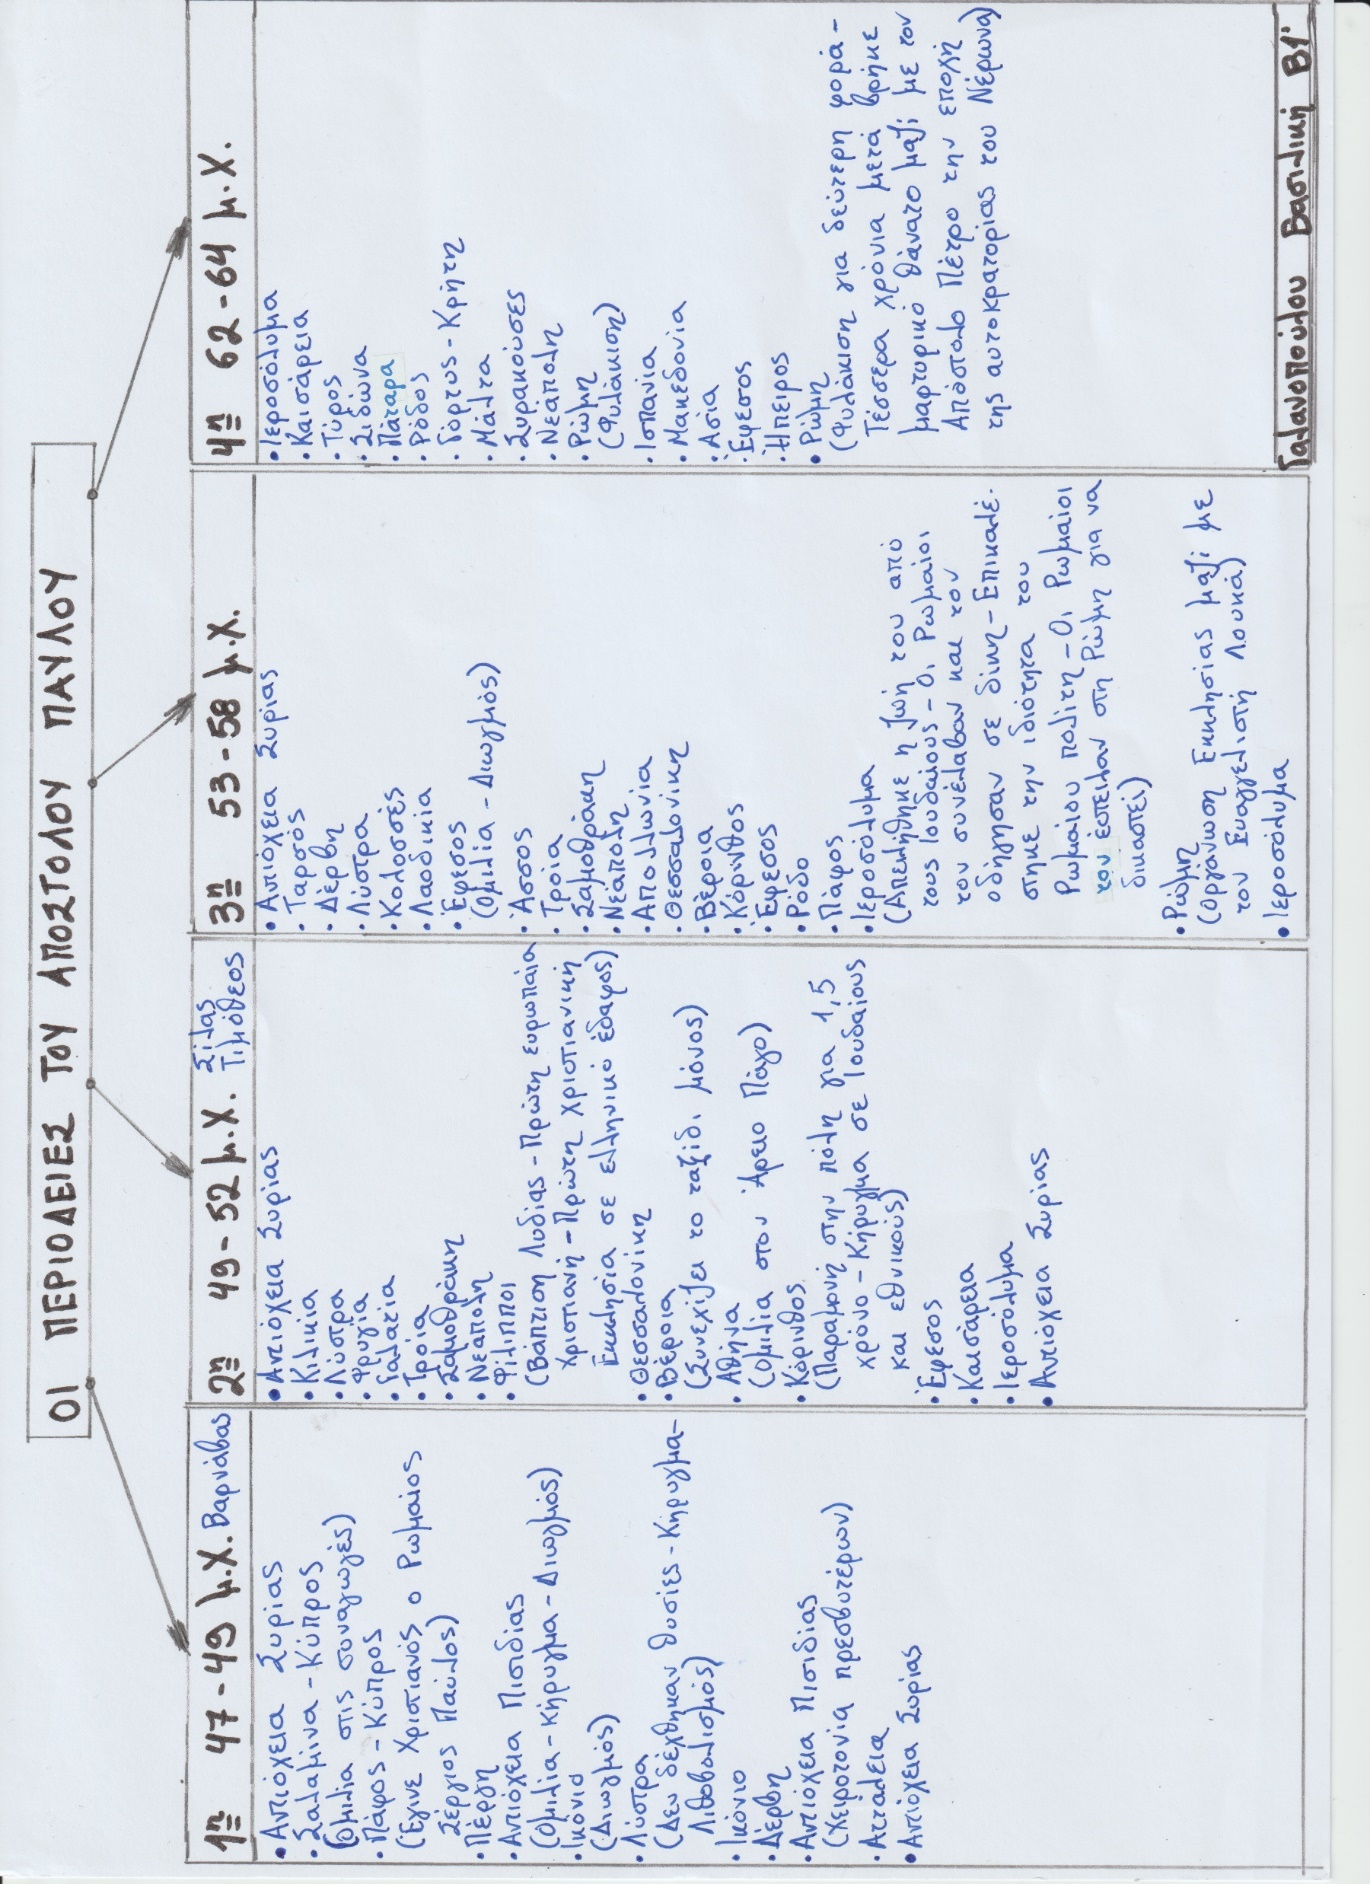 ΟΙ ΠΕΡΙΟΔΕΙΕΣ ΤΟΥ ΑΠΟΣΤΟΛΟΥ ΠΑΥΛΟΥ
1η 47-49 μ.Χ. Βαρνάβας
• Αντιόχεια Συρίας
• Σαλαμίνα-Κύπρος
(Ομιλία στις συναγωγές)
• Πάφος-Κύπρος
(Έγινε Χριστιανός ο Ρωμαίος
Σέργιος Παύλος)
• Πέργη
• Αντιόχεια Πισιδίας
(Ομιλία-Κήρυγμα-Διωγμός)
• Ικόνιο
(Διωγμός)
• Λύστρα
(Δεν δέχθηκαν θυσίες-Κήρυγμα-
Λιθοβολισμός)
• Ικόνιο
• Δέρβη
• Αντιόχεια Πισιδίας
(Χειροτονία πρεσβυτέρων)
• Αττάλεια
• Αντιόχεια Συρίας
2η 49-52 μ.Χ. Σίλας
Τιμόθεος
• Αντιόχεια Συρίας
• Κιλικία
• Λύστρα
• Φρυγία
• Γαλατία
• Τροία
• Σαμοθράκη
• Νεάπολη
• Φίλιπποι
(Βάπτιση Λυδίας-Πρώτη ευρωπαία
Χριστιανή-Πρώτη Χριστιανική
Εκκλησία σε ελληνικό έδαφος)
• Θεσσαλονίκη
• Βέροια
(Συνεχίζει το ταξίδι μόνος)
• Αθήνα
(Ομιλία στον Άρειο Πάγο)
• Κόρινθος
(Παραμονή στην πόλη για 1,5
χρόνο-Κήρυγμα σε Ιουδαίους
και εθνικούς)
• Έφεσος
• Καισάρεια
• Ιεροσόλυμα
• Αντιόχεια Συρίας
3η 53-58 μ.Χ.
• Αντιόχεια Συρίας
• Ταρσός
• Δέρβη
• Λύστρα
• Κολοσσές
• Λαοδικία
• Έφεσος
(Ομιλία-Διωγμός)
• Άσσος
• Τροία
• Σαμοθράκη
• Νεάπολη
• Απολλωνία
• Θεσσαλονίκη
• Βέροια
• Κόρινθος
• Έφεσος
• Ρόδο
• Πάφος
• Ιεροσόλυμα
(Απειλήθηκε η ζωή του από
τους Ιουδαίους-Οι Ρωμαίοι
τον συνέλαβαν και τον
οδήγησαν σε δίκη-Επικαλέ-
στηκε την ιδιότητα του
Ρωμαίου πολίτη-Οι Ρωμαίοι
τον έστειλαν στη Ρώμη για να
δικαστεί)
• Ρώμη
(Οργάνωση Εκκλησίας μαζί με
τον Ευαγγελιστή Λουκά)
• Ιεροσόλυμα
4η 62-64 μ.Χ.
• Ιεροσόλυμα
• Καισάρεια
• Τύρος
• Σιδώνα
• Πάταρα
• Ρόδος
• Γόρτυς-Κρήτη
• Μάλτα
• Συρακούσες
• Νεάπολη
• Ρώμη
(Φυλάκιση)
• Ισπανία
• Μακεδονία
• Ασία
• Έφεσος
• Ήπειρος
• Ρώμη
(Φυλάκιση για δεύτερη φορά-
Τέσσερα χρόνια μετά βρήκε
μαρτυρικό θάνατο μαζί με τον
Απόστολο Πέτρο την εποχή
της αυτοκρατορίας του Νέρωνα)
Γαλανοπούλου Βασιλική Β1'